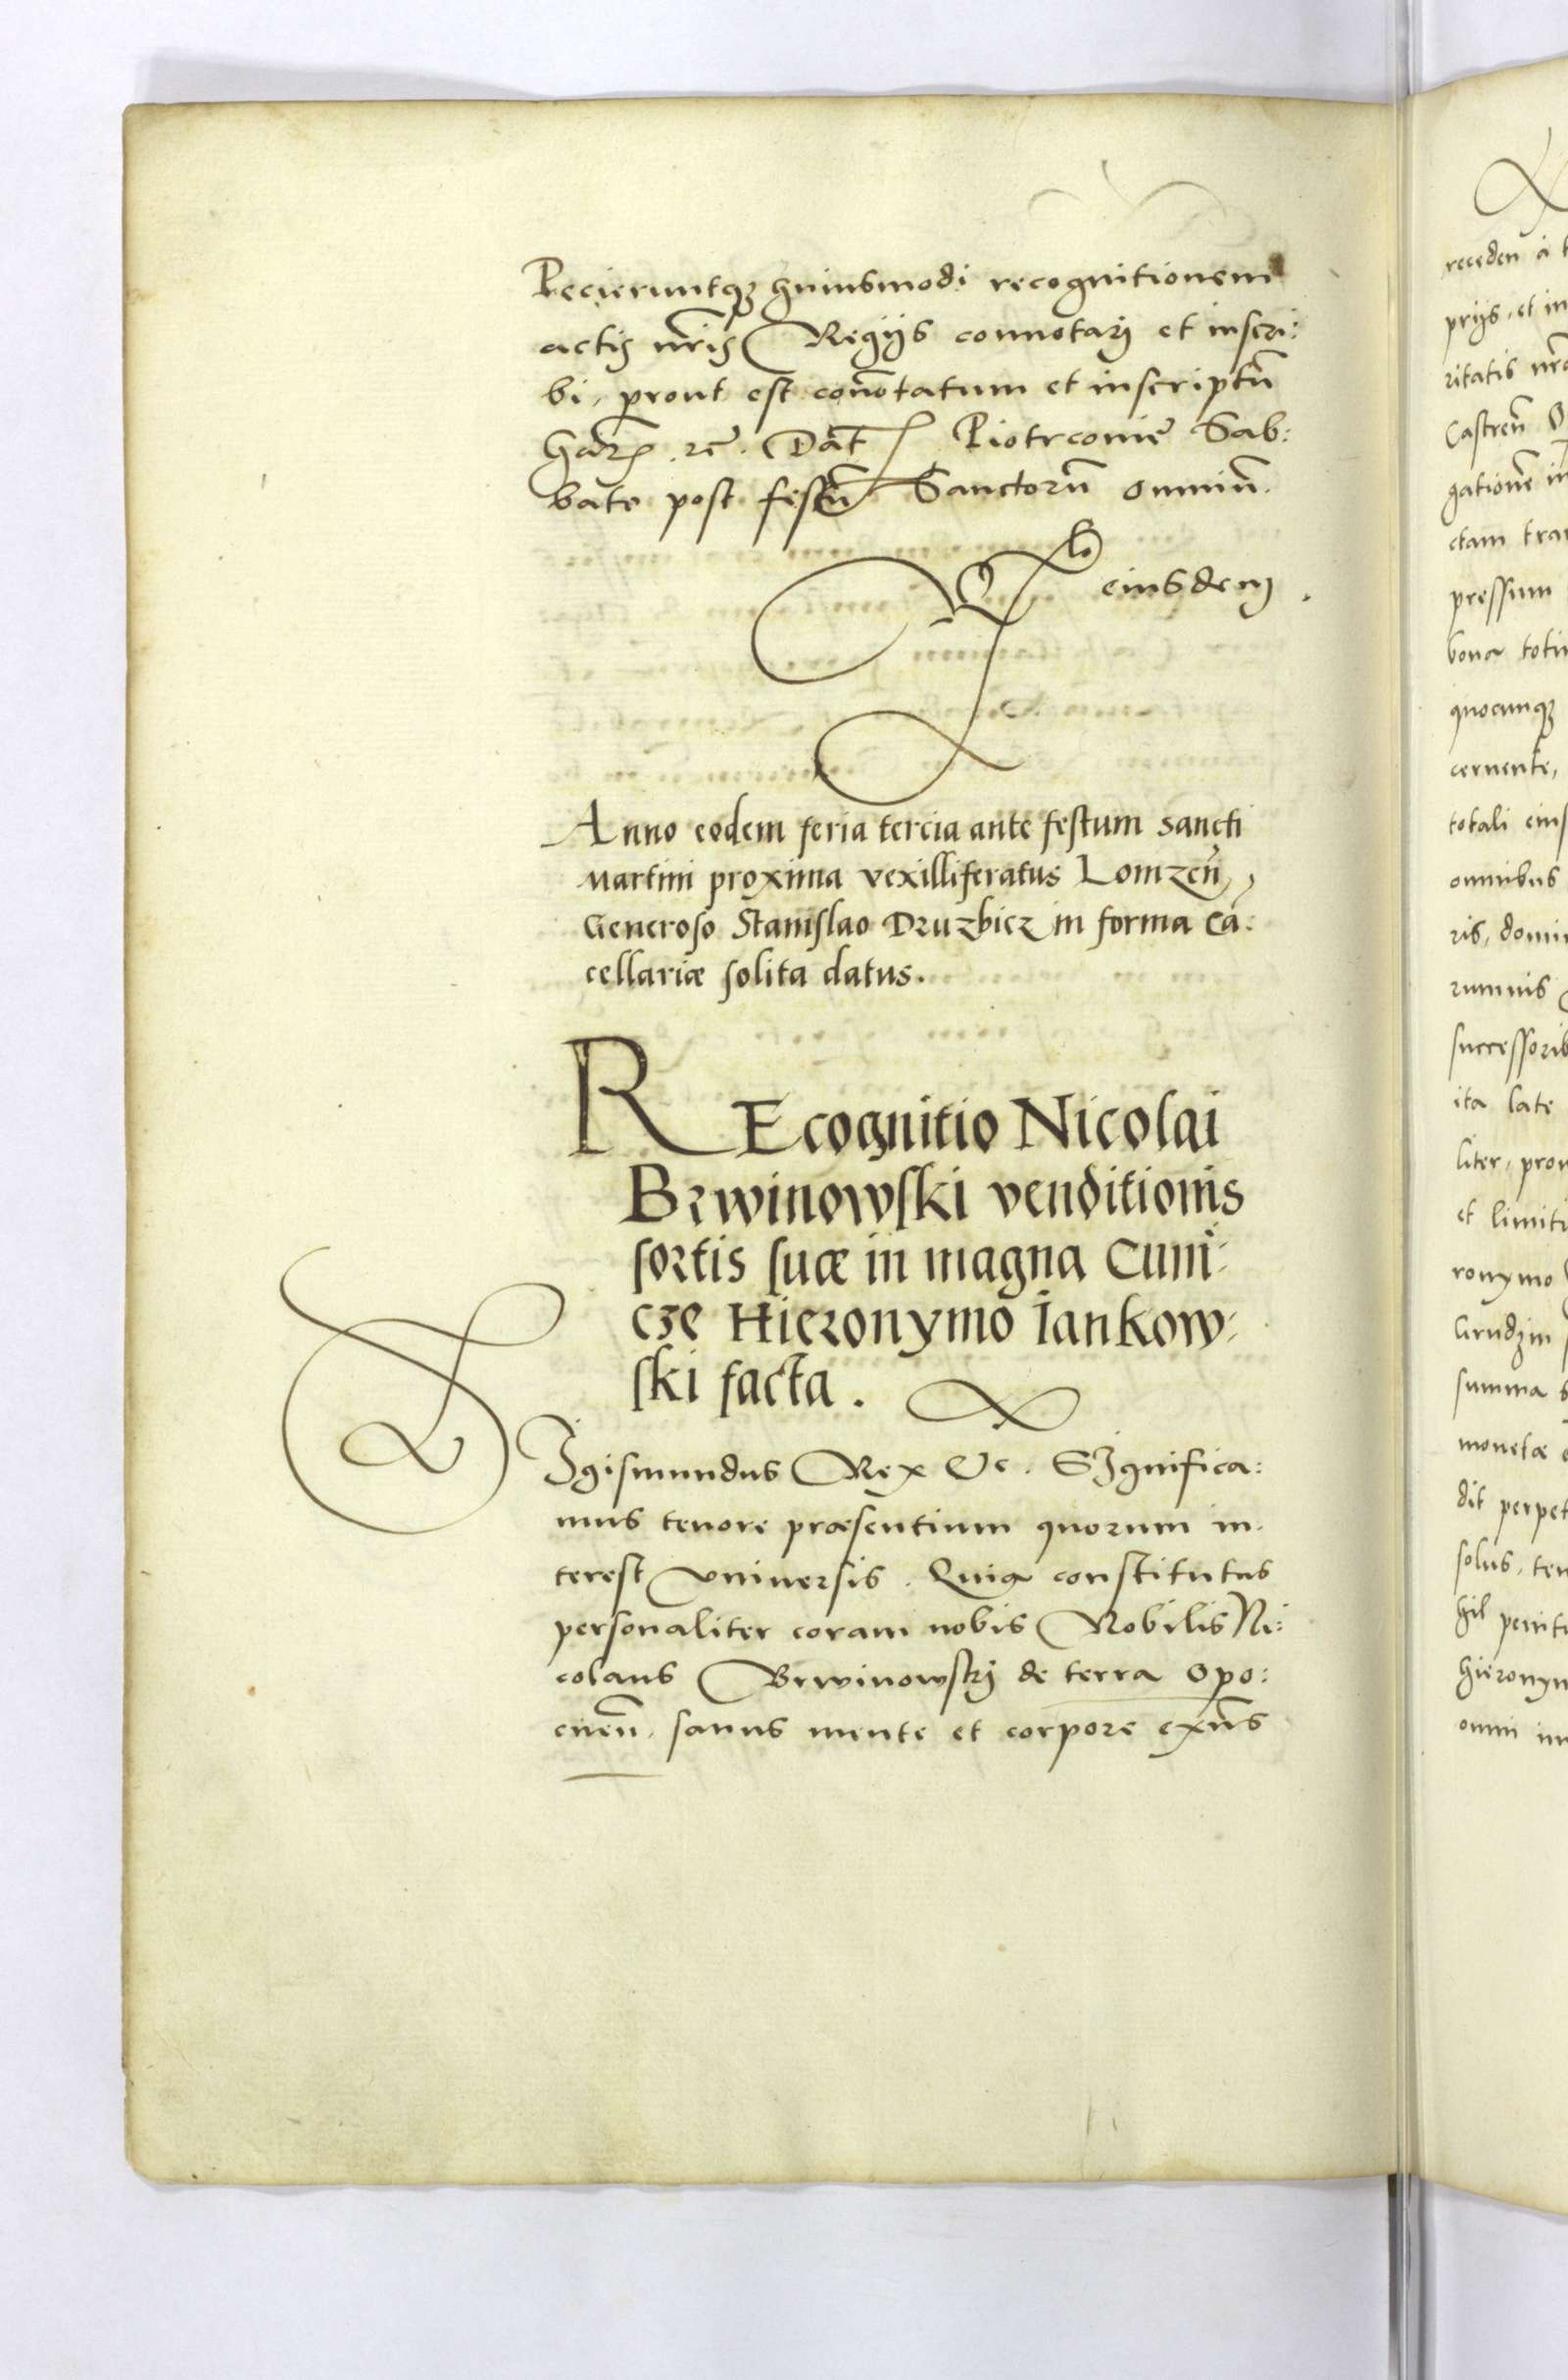 Pecieruntq₃ huiusmodi recognitionem
actis nr̃is Regijs connotarj et inscri:
bi, prout est coñotatum et inscriptũ
harʒ. rc̃. Dat̃ Piotrconiẽ Sab:
bato post festũ Sanctorũ omniũ.
eiusdem.
Anno eodem feria tercia ante festum sancti
Martini proxima vexilliferatus Lomzeñ,
Generoso Stanislao Druzbicz in forma Cã:
cellariæ solita datus.
REcognitio Nicolai
Brwinowski venditionis
sortis suæ in magna Cuni:
cze Hieronymo Iankow:
ski facta.
SIgismundus Rex &c. SIgnifica:
mus tenore præsentium quorum in
terest vniuersis. Quia constitutus
personaliter coram nobis Nobilis Ni:
colaus Brwinowskj de terra Opo:
cneñ. sanus mente et corpore exñs
receden a
prijs, et in
ritatis nr̃o
Castreñ
gationẽ
ctam tra
pressum
bona toti
quocunq₃
cernente,
totali eius
omnibus
ris, domi
rumnis
successorib
ita late
liter, prou
et limit
ronymo
Grudzin
summa
monetæ
dit perpet
solus, ten
hil penit
hieronym
omni im